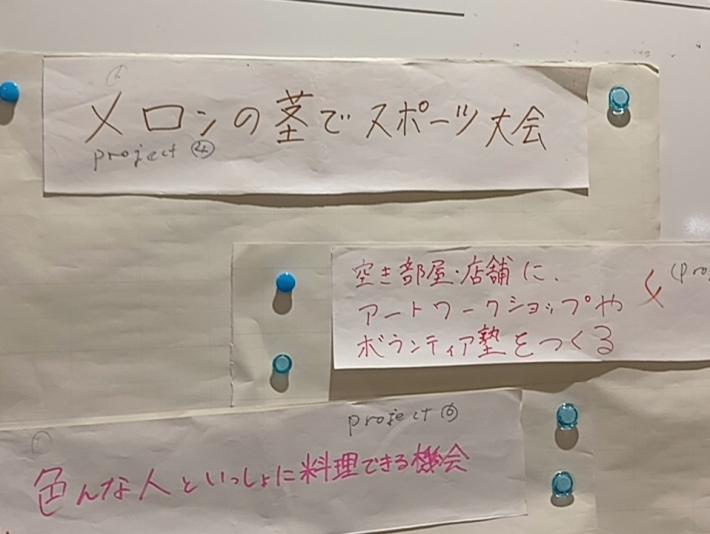 メロンの茎でスポーツ大会
project ④
空き部屋・店舗に、
アートワークショップや
ボランティア塾をつくる
(pro
project ⑥
色んな人といっしょに料理できる機会